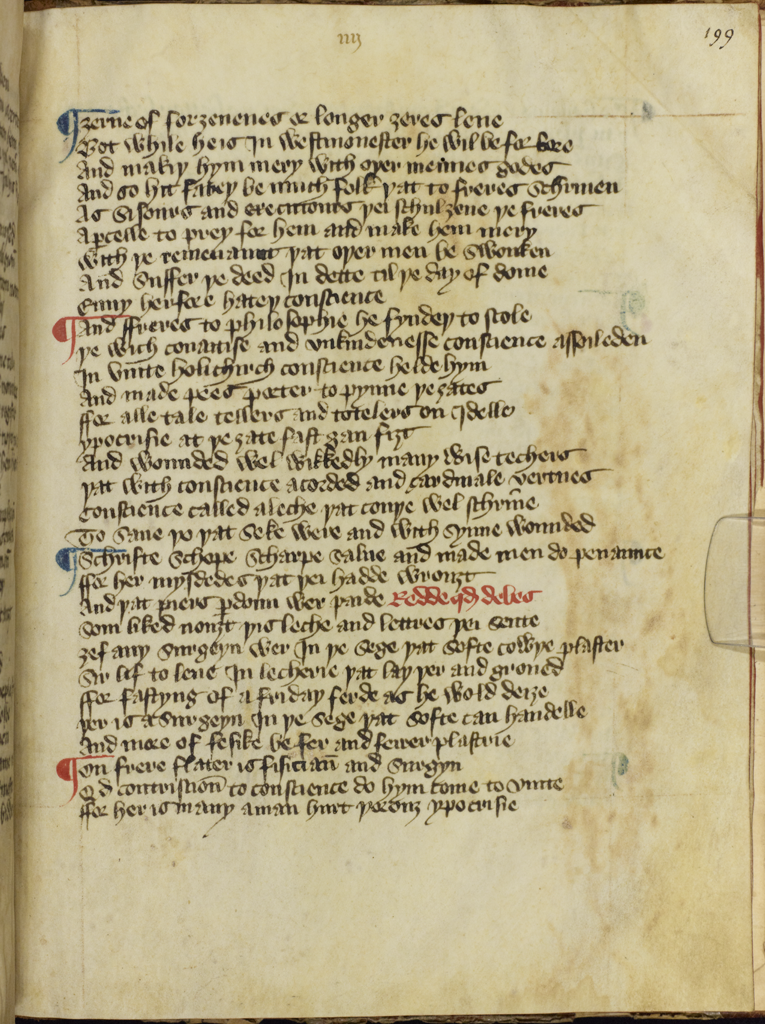 iiij
199
¶ Ȝerne of forȝeuenes or longer ȝeres leue
Bot while he is In westmonester he wil be for bore
And makiþ hym mery with oþer mennes godes
And so hit fareþ be much folk þat to freres schriuen
As sisours and executours þei schul ȝeue þe freres
A parcelle to prey for hem and make hem mery
With þe remenaunt þat oþer men be swonken
And suffer þe deed In dette til þe day of dome
Enuy herfore hateþ conscience
¶ And ffreres to philosophie he fyndeþ to scole
Þe wich couaitise and vnkindenesse conscience assaileden
In vnite holichirch conscience helde hym
And made pees porter to pynne þe ȝates
ffor alle tale tellers and titelers on Idelle
Ypocrisie at þe ȝate fast gan fiȝt
And wounded wel wikkedly many wise techers
Þat with conscience acorded and cardinale vertues
Conscience called a leche þat couþe wel schriue
To saue þo þat seke were and with synne wounded
¶ Schrifte schope scharpe salue and made men do penaunce
ffor her mysdedes þat þei hadde wrouȝt
And þat piers pardoun wer paide Redde qd debes
Som liked nouȝt þis leche and lettres þei sente
Ȝef any surgeyn wer In þe sege þat softe couþe plaster
Sir lif to leue In lecherie þat lay þer and groned
ffor fastyng of a friday ferde as he wold deiȝe
Þer is a surgeyn In þe sege þat softe can handelle
And more of fesike be fer and fairer plastrie
¶ On frere flater is fisician and surgyn
Qd contriscion to conscience do hym come to vnite
ffor her is many a man hurt þorouȝ ypocrisie